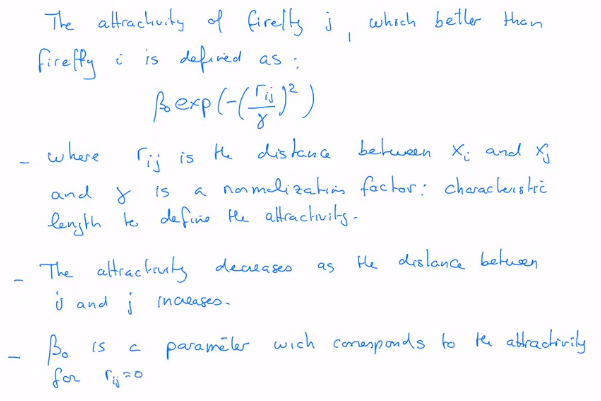 The attractivity of firefly j, which better than
firefly i is defined as:
β₀ exp(-(rij/γ)²)
- where rij is the distance between xi and xj
and γ is a normalization factor: characteristic
length to define the attractivity.
- The attractivity decreases as the distance between
i and j increases.
- β₀ is a parameter wich corresponds to the attractivity
for rij=0